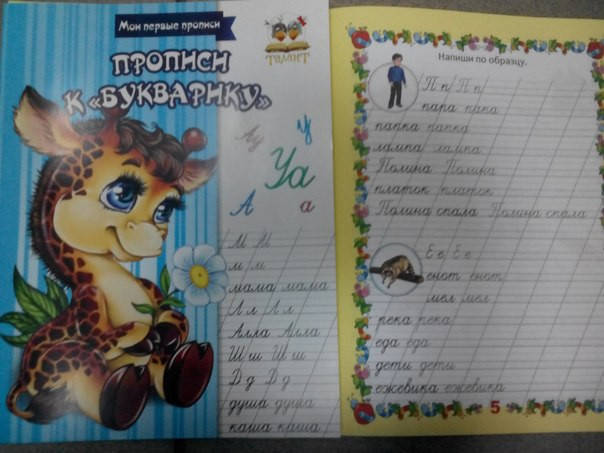 Мои первые прописи
талант
ПРОПИСИ
К «БУКВАРИКУ»
Ау
У
Уа
А
а
М М
м м
мама мама
А л А л
Алла Алла
Ш ш Ш ш
Д д Д д
душа душа
каша каша
Напиши по образцу.
П п П п
пара папа
папка папка
лампа лампа
Полина Полина
платок платок
Полина спала Полина спала
Е е Е е
енот енот
мел мел
река река
еда еда
дети дети
ежевика ежевика
5